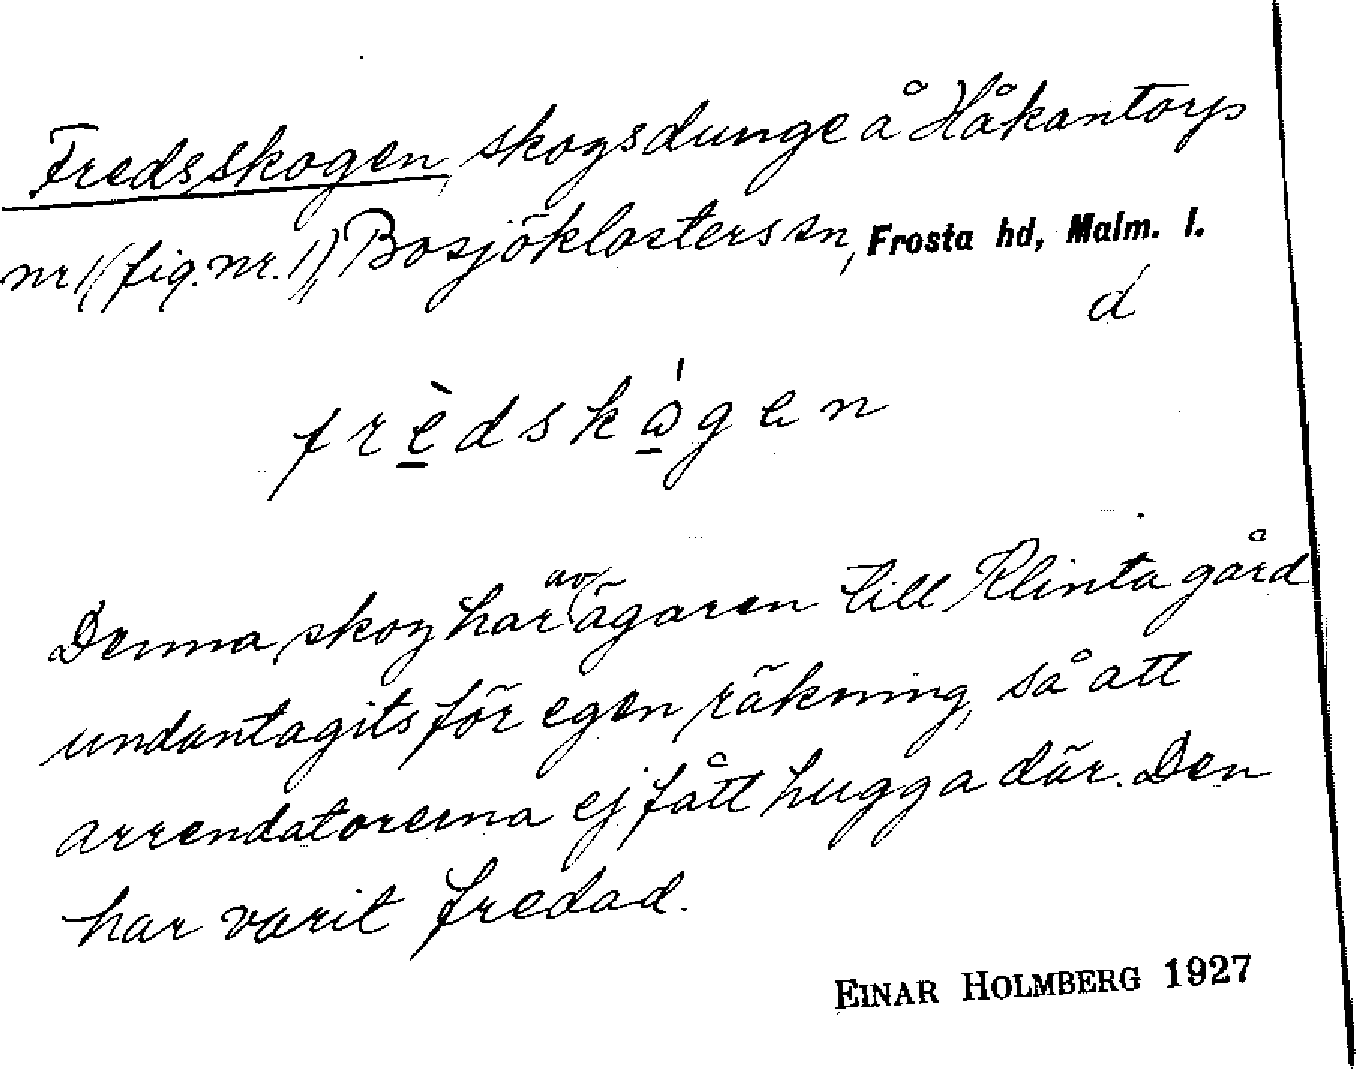 Fredsskogen, skogsdunge å Håkantorp
nr 1 (fig. nr. 1), Bosjöklosters sn, Frosta hd, Malm. l.
d
frèdskógen
Denna skog har av ägaren till Klinta gård
undantagits för egen räkning, så att
arrendatorerna ej fått hugga där. Den
har varit fredad.
EINAR HOLMBERG 1927